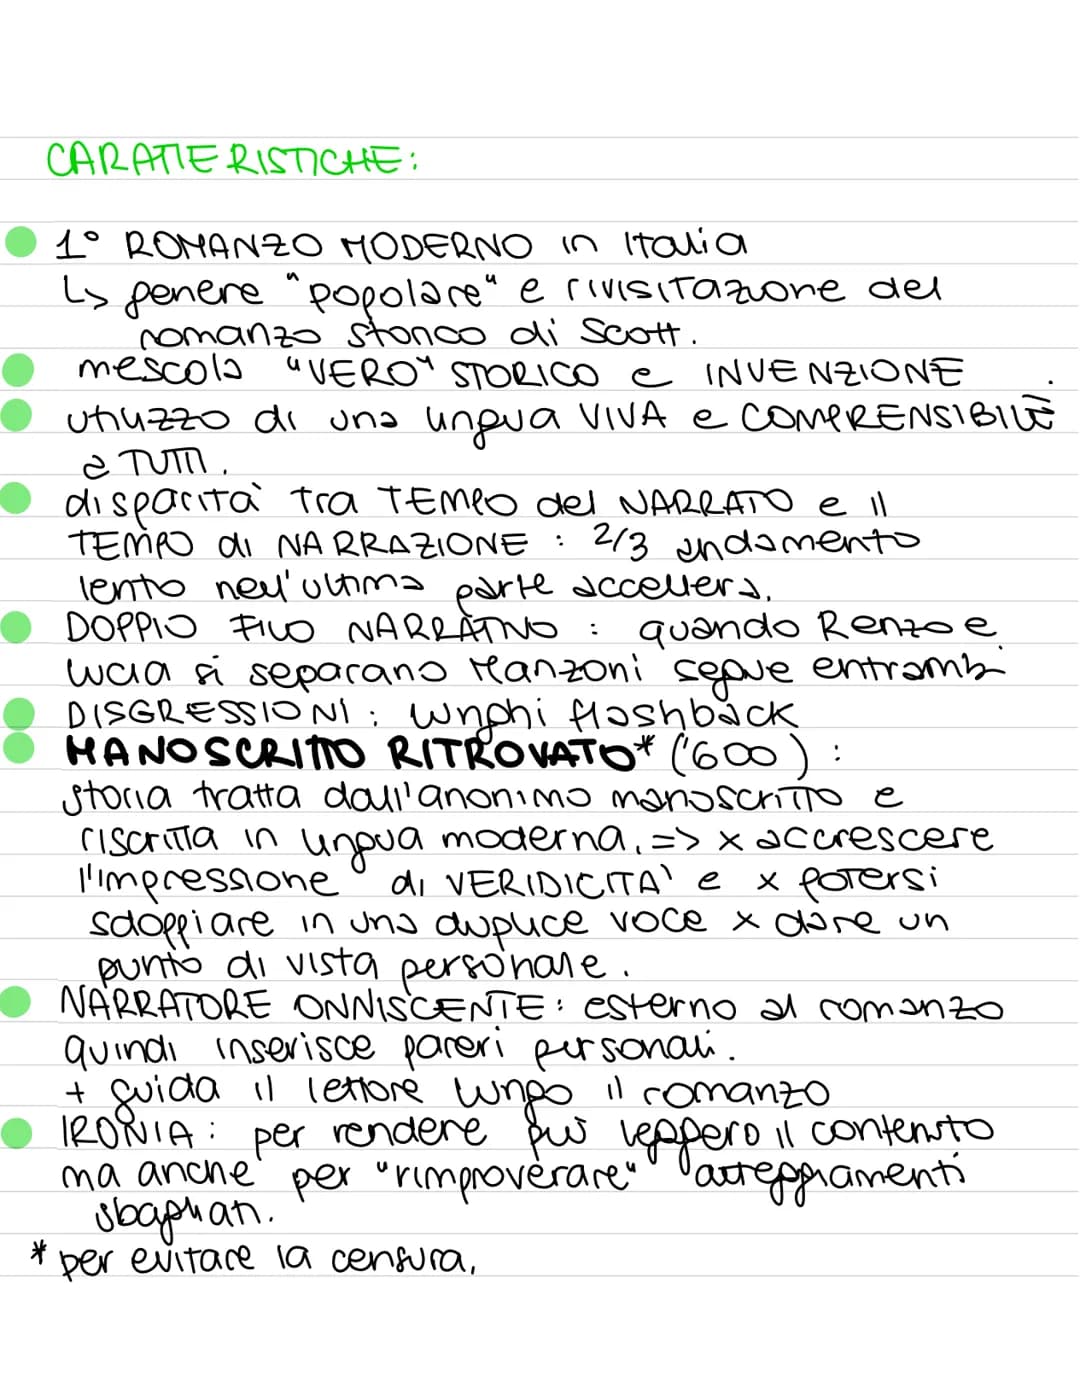 CARATTERISTICHE:
1° ROMANZO MODERNO in Italia
↳ genere "popolare" e rivisitazione del
romanzo storico di Scott.
mescola "VERO" STORICO e INVENZIONE.
utilizzo di una lingua VIVA e COMPRENSIBILE
a TUTTI.
disparità tra TEMPO del NARRATO e il
TEMPO di NARRAZIONE : 2/3 andamento
lento nell'ultima parte accellera.
DOPPIO FILO NARRATIVO : quando Renzo e
Lucia si separano Manzoni segue entrambi
DISGRESSIONI: lunghi flashback
MANOSCRITTO RITROVATO* ('600) :
storia tratta dall'anonimo manoscritto e
riscritta in lingua moderna. => x accrescere
l'impressione di VERIDICITA' e x potersi
sdoppiare in una duplice voce x dare un
punto di vista personale.
NARRATORE ONNISCENTE: esterno al romanzo
quindi inserisce pareri personali.
+ guida il lettore lungo il romanzo
IRONIA: per rendere più leggero il contenuto
ma anche per "rimproverare" atteggiamenti
sbagliati.
* per evitare la censura.